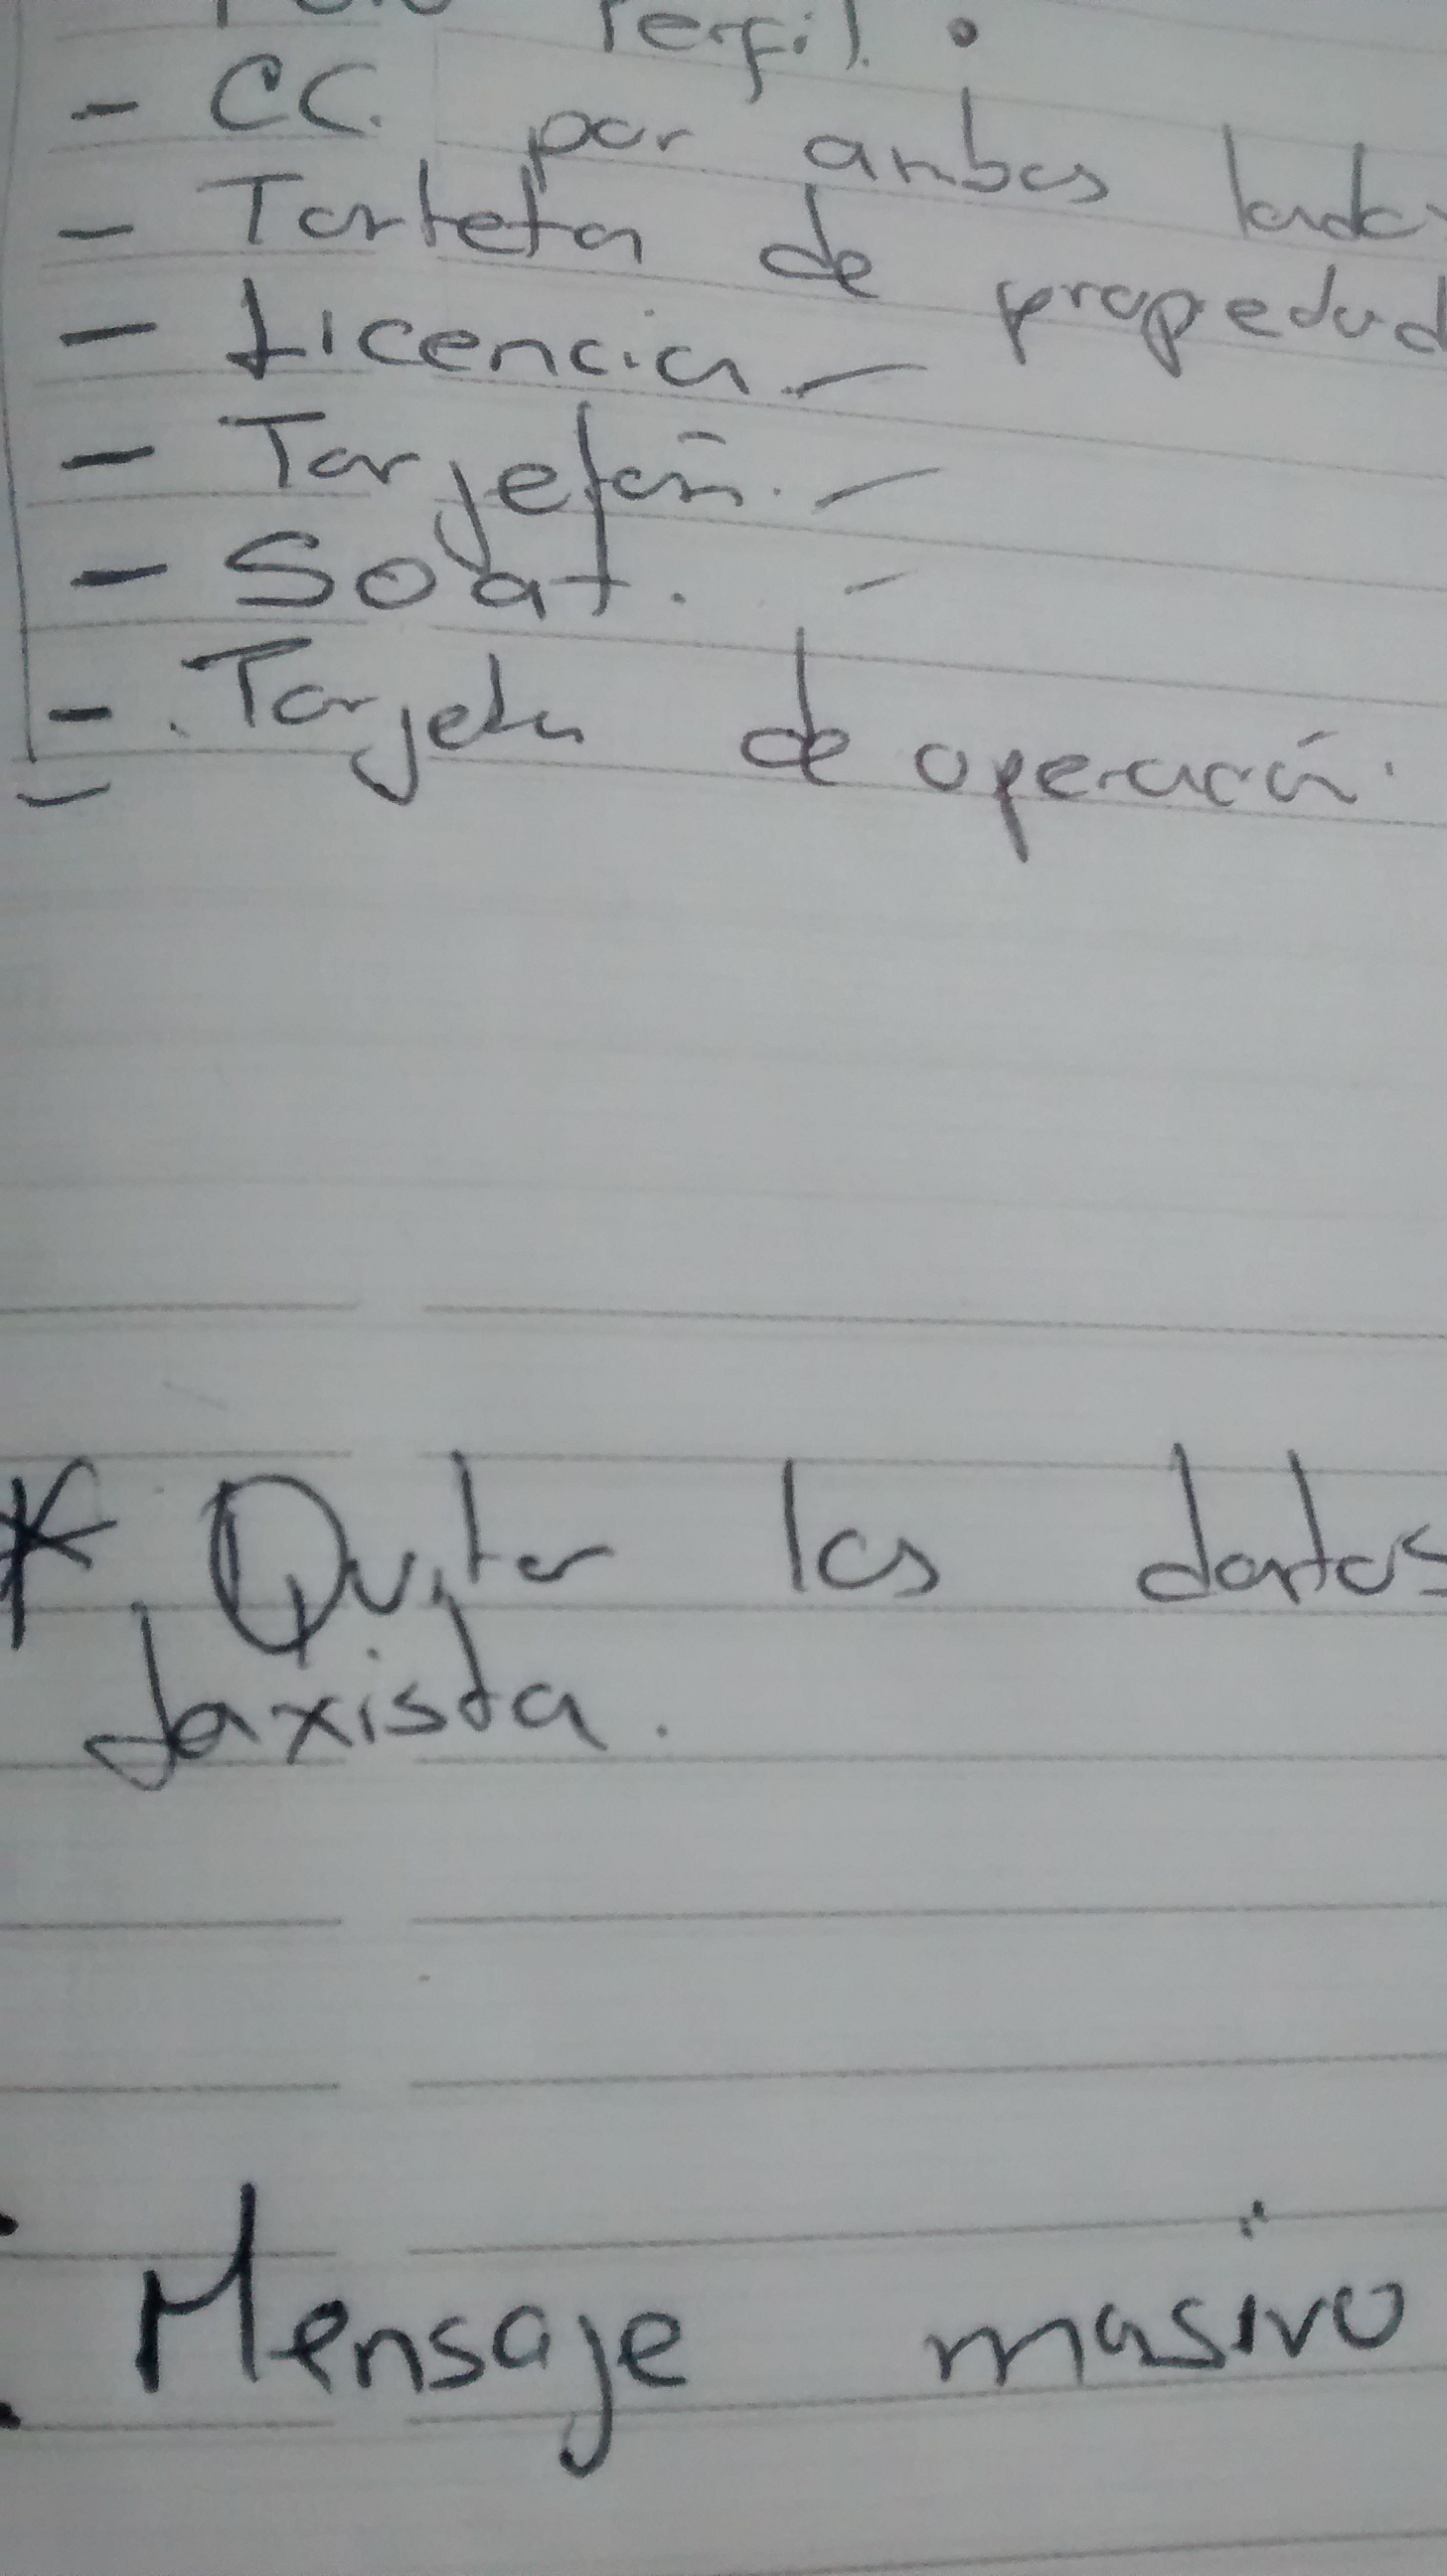 Perfil.
- CC. por ambos lados
- Tarteta de propedad
- Licencia -
- Tarjetón. -
- Soat. -
- Tarjeta de operación.
-
* Quitar los datos
taxista.
Mensaje masivo